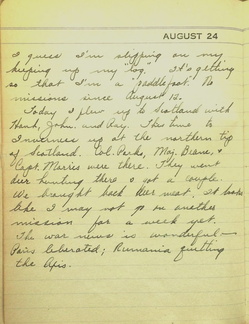 AUGUST 24
I guess I'm slipping on my
keeping up my "log". It's getting
so that I'm a "saddlefoot". No
missions since August 12.
Today I flew up to Scotland with
Hank, John, and Ray. This time to
Inverness up at the northern tip
of Scotland. Col. Parks, Maj. Beane, &
Capt. were there. They went
deer hunting there & got a couple.
We brought back deer meat. It looks
like I may not go on another
mission for a week yet.
The war news is wonderful—
Paris liberated; Rumania quitting
the Axis.